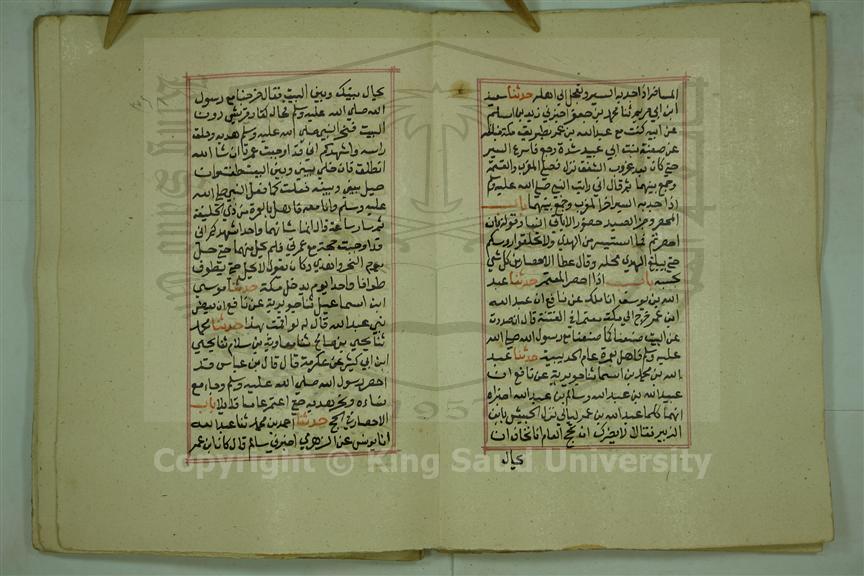 المسافر اذا جد به السير وتعجل الى اهله حدثنا سعيد
ابن ابي مريم ثنا محمد بن جعفر اخبرني زيد بن اسلم
عن ابيه كنت مع عبد الله بن عمر بطريق مكة فبلغه
عن صفية بنت ابي عبيد شدة وجع فاسرع السير
حتى كان بعد غروب الشفق نزل فصلى المغرب والعتمة
وجمع بينهما ثم قال اني رايت النبي صلى الله عليه وسلم
اذا جد به السير اخر المغرب وجمع بينهما باب
المحصر وجزا الصيد وقوله فان
احصرتم فما استيسر من الهدي ولا تحلقوا روسكم
حتى يبلغ الهدي محله وقال عطا الاحصار من كل شي
يحبسه باب اذا احصر المعتمر حدثنا عبد
الله بن يوسف انا ملك عن نافع ان عبد الله
ابن عمر خرج الى مكة معتمرا في الفتنة قال ان صددت
عن البيت صنعنا كما صنعنا مع رسول الله صلى الله
عليه وسلم فاهل بعمرة عام الحديبية حدثنا عبد
الله بن محمد بن اسما ثنا جويرية عن نافع ان
عبيد الله بن عبد الله وسالم بن عبد الله اخبراه
انهما كلما عبد الله بن عمر ليالي نزل الجيش بابن
الزبير فقالا لا يضرك ان لا تحج العام انا نخاف ان
يحال
يحال بينك وبين البيت فقال خرجنا مع رسول
الله صلى الله عليه وسلم فحال كفار قريش دون
البيت فنحر النبي صلى الله عليه وسلم هديه وحلق
راسه واشهدكم اني قد اوجبت عمرة ان شا الله
انطلق فان خلي بيني وبين البيت طفت وان
حيل بيني وبينه فعلت كما فعل النبي صلى الله
عليه وسلم وانا معه فاهل بالعمرة من ذي الحليفة
ثم سار ساعة ثم قال انما شانهما واحد اشهدكم اني
قد اوجبت حجة مع عمرتي فلم يحل منهما حتى حل
يوم النحر واهدى وكان يقول لا يحل حتى يطوف
طوافا واحدا يوم يدخل مكة حدثنا موسى
ابن اسماعيل ثنا جويرية عن نافع ان بعض
بني عبد الله قال له لو اقمت بهذا حدثنا محمد
ثنا يحيى بن صالح ثنا معاوية بن سلام ثنا يحيى
ابن ابي كثير عن عكرمة قال قال ابن عباس قد
احصر رسول الله صلى الله عليه وسلم وجامع
نساءه ونحر هديه حتى اعتمر عاما قابلا باب
الاحصار في الحج حدثنا احمد بن محمد ثنا عبد الله
انا يونس عن الزهري اخبرني سالم قال كان ابن عمر
Copyright © King Saud University
1957